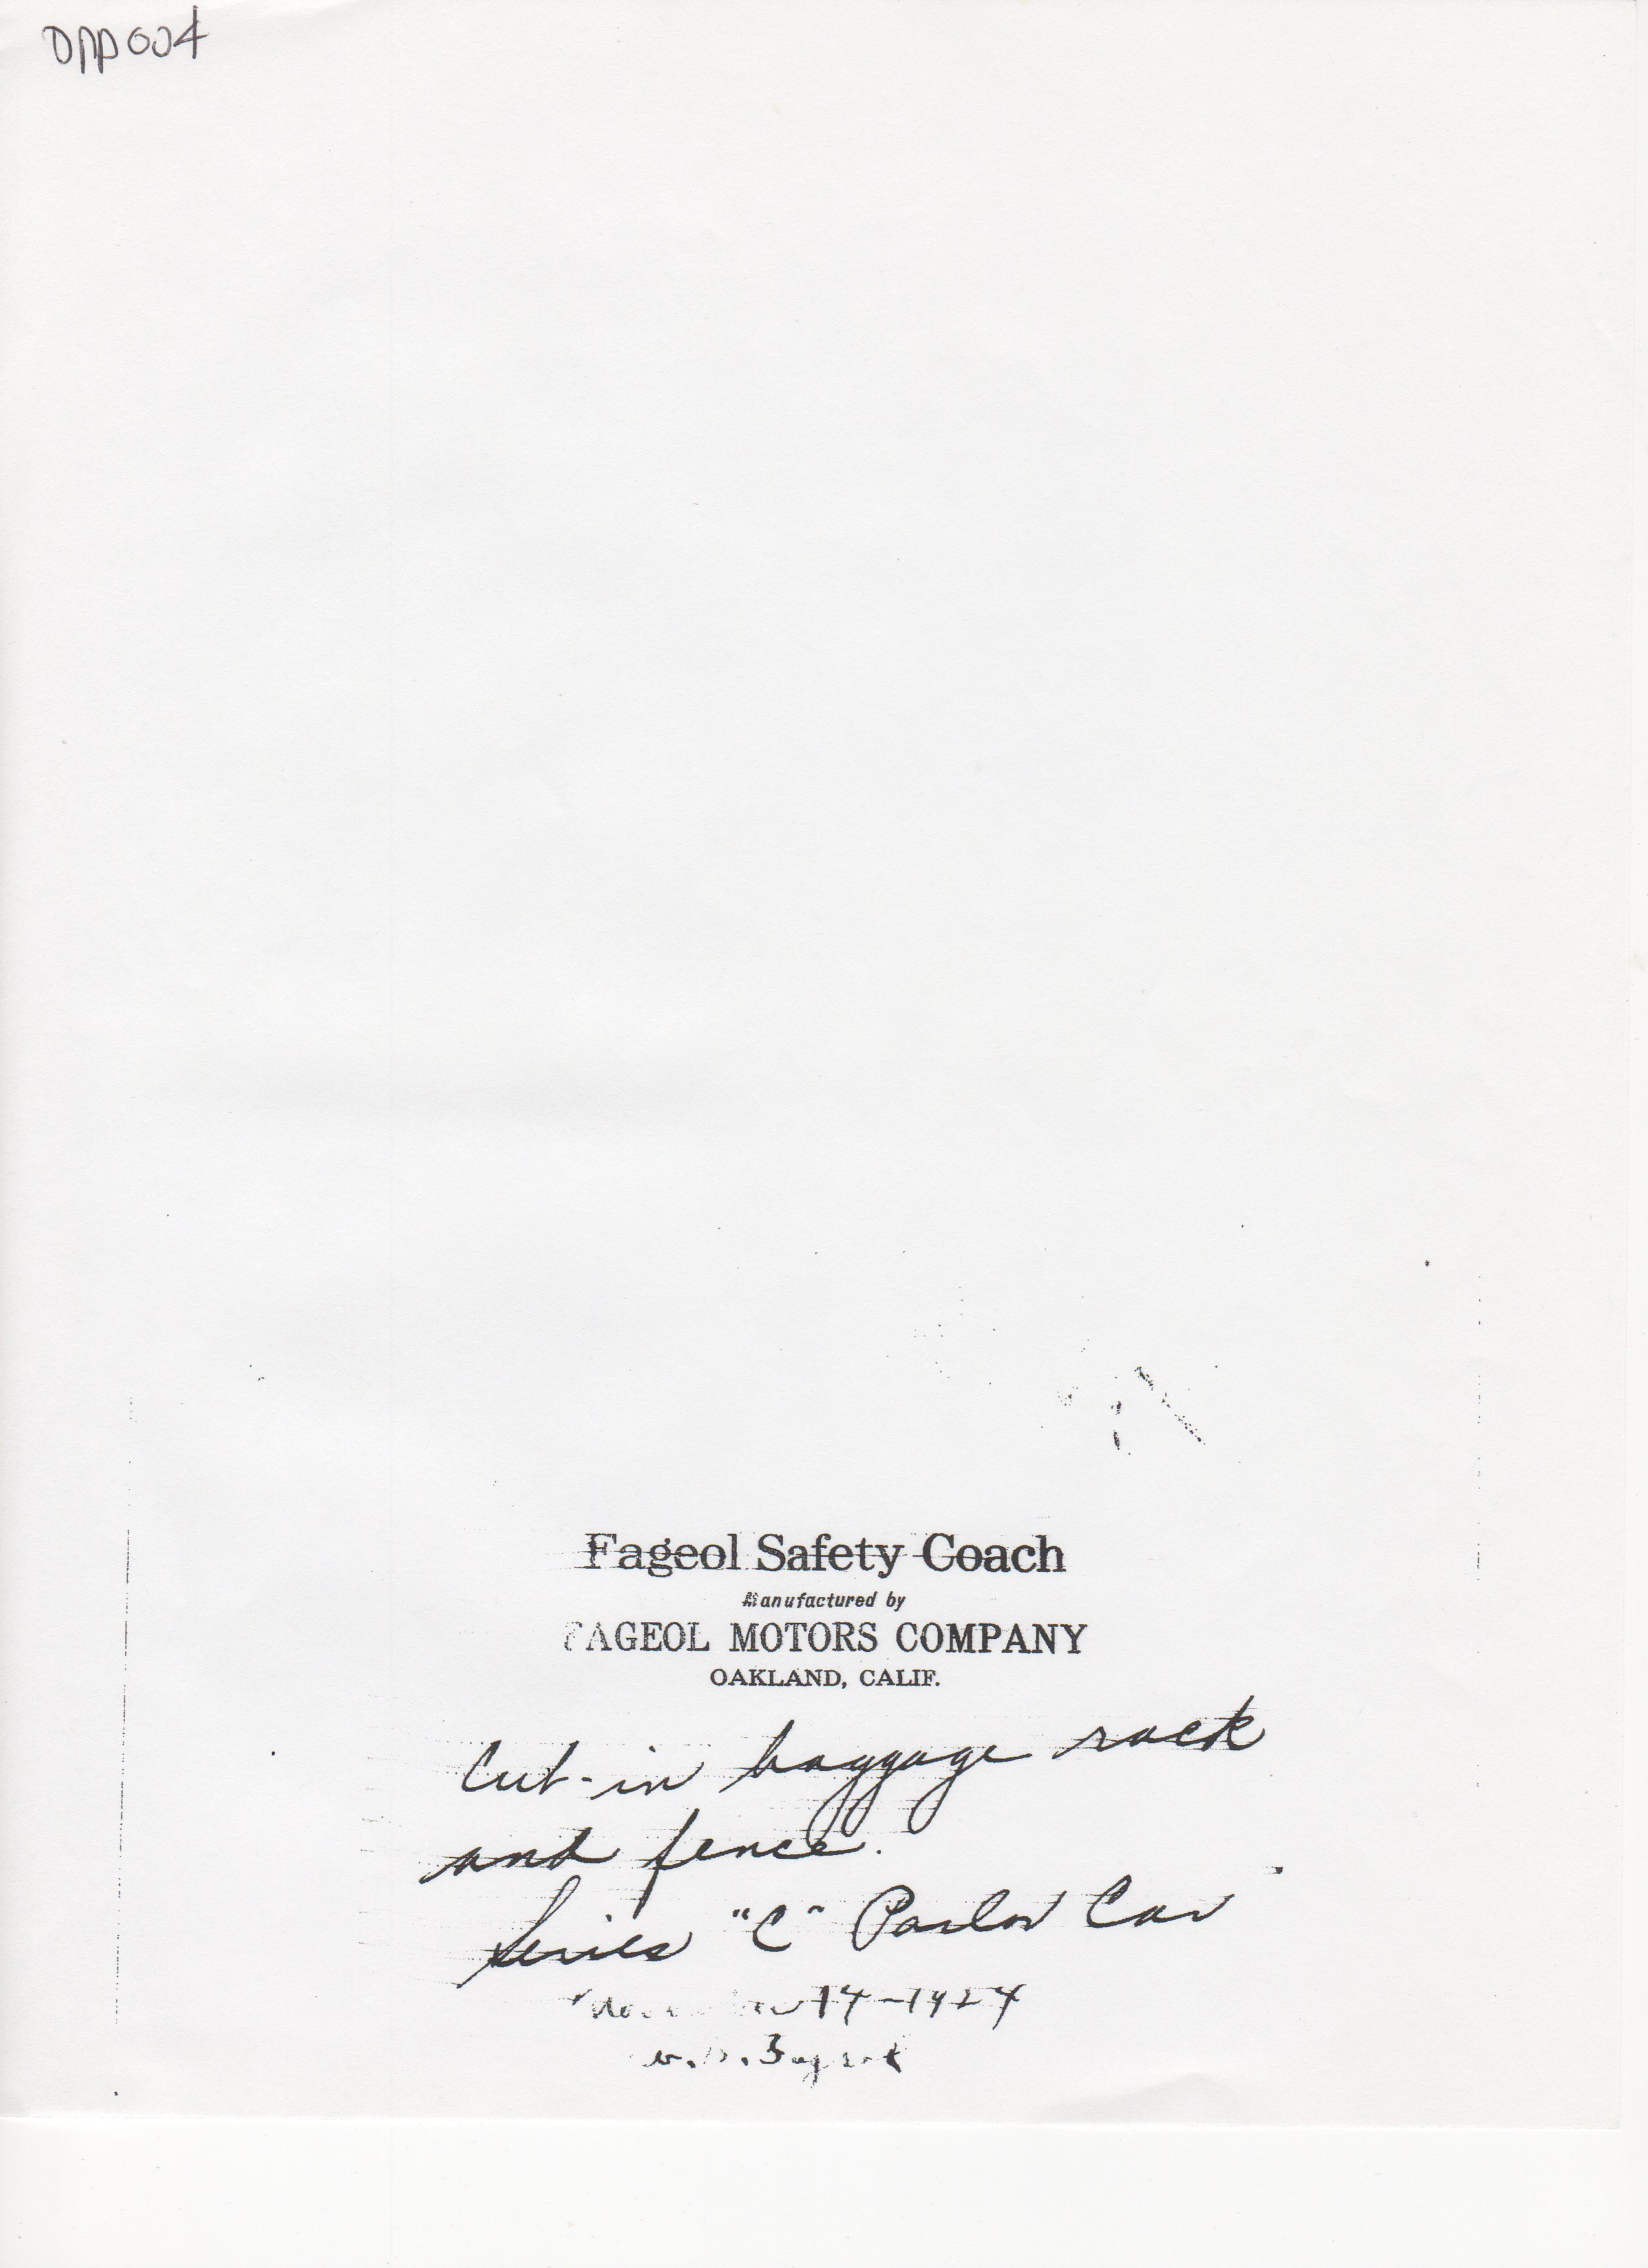 Fageol Safety Coach
Manufactured by
FAGEOL MOTORS COMPANY
OAKLAND, CALIF.
Cut-in baggage rack
and fence.
Series "C" Parlor Car
14-1924